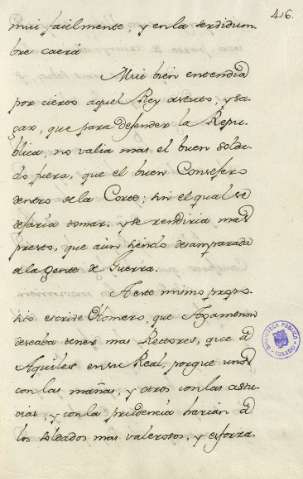 416.
mui facilmente, y en la servidum
bre caerá
Mui bien entendia
por cierto aquel Rey astuto, y sa
gaz, que para defender la Repu
blica, no valia mas el buen Solda
do fuera, que el buen Consejero
dentro de la Corte; sin el qual se
dejaria tomar, y se rendiria mas
presto, que aun siendo desamparada
de la gente de Guerra.
A este mismo propo
sito escrive Homero, que Agamenon
deseaba tener mas Nectores, que
Aquiles en su Real, porque unos
con las mañas, y otros con las astu
cias, y con la prudencia harian a
los Soldados mas valerosos, y esforza
BIBLIOTECA PUBLICA
TOLEDO